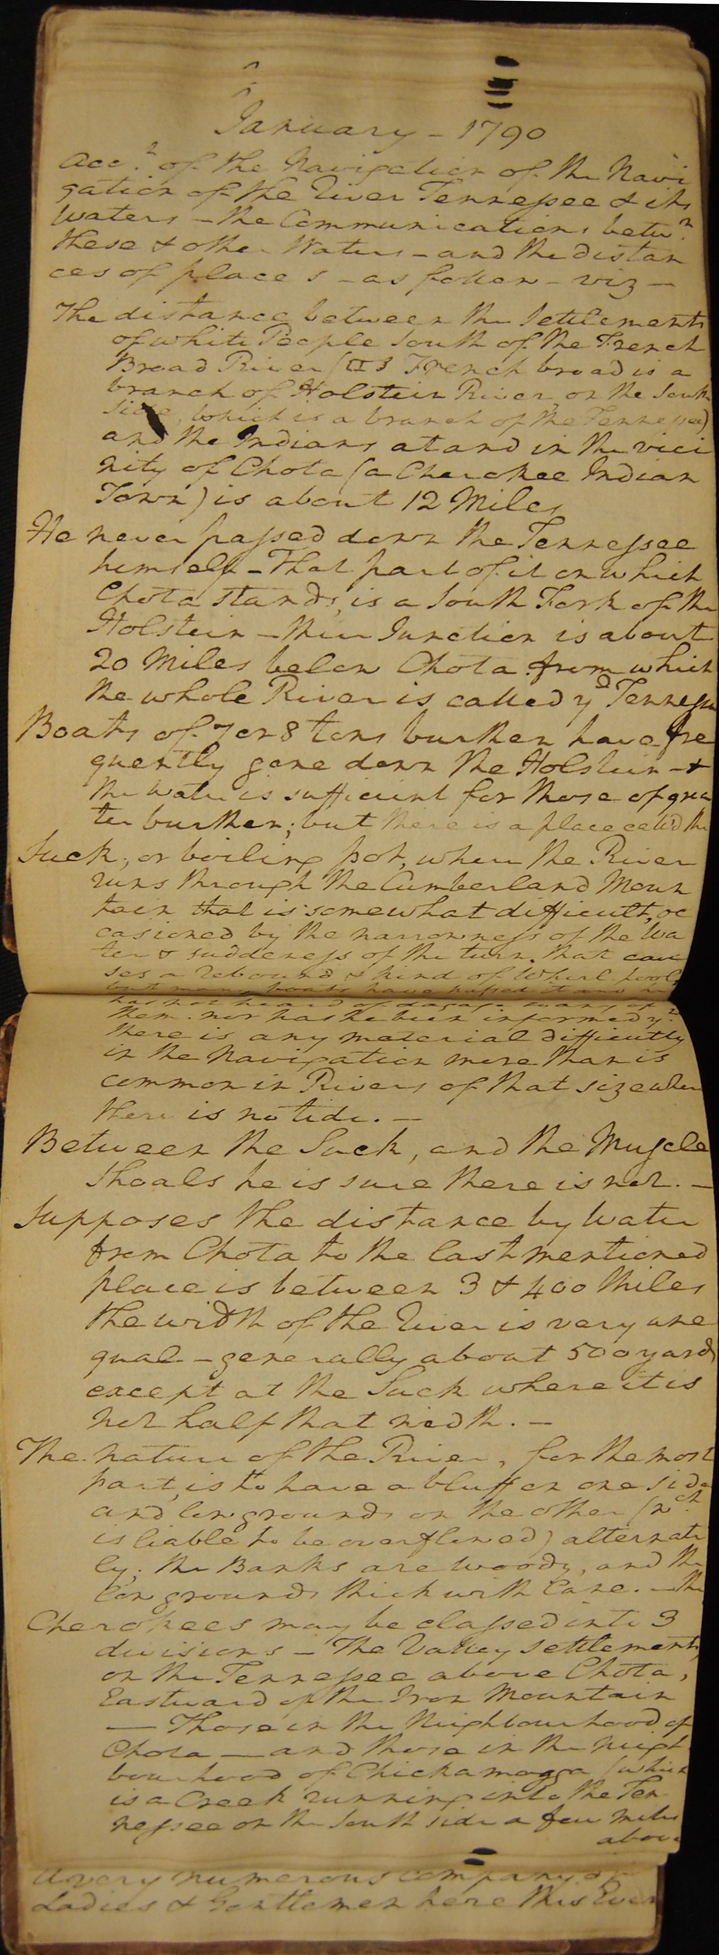 January - 1790
Acct. of the Navigation of the Navi
gation of the River Tennessee & its
Waters - the Communications betwn.
these & other Waters - and the distan
ces of places - as follow - viz -
The distance between the Settlements
of white People South of the French
Broad River (The French broad is a
branch of Holstein River on the South
side, which is a branch of the Tennessee)
and the Indians at and in the vici
nity of Chota (a Cherokee Indian
Town) is about 12 Miles
He never passed down the Tennessee
himself - That part of it on which
Chota stands, is a South Fork of the
Holstein - their Junction is about
20 Miles below Chota from which
the whole River is called yd Tennessee
Boats of 7 or 8 tons burthen have fre
quently gone down the Holstein - &
the Water is sufficient for those of grea
ter burthen; but there is a place called the
Suck, or boiling pot, where the River
runs through the Cumberland Moun
tain that is somewhat difficult, oc
casioned by the narrowness of the Wa
ter & suddeness of the turn that cau
ses a rebound & kind of Whirlpool
but many boats have passed it and he
has not heard of damage to any of
them. nor has he been informed yt.
there is any material difficulty
in the Navigation more than is
common in Rivers of that size when
there is no tide. -
Between the Suck, and the Muscle
Shoals he is sure there is not. -
Supposes the distance by Water
from Chota to the last mentioned
place is between 3 & 400 Miles
the width of the River is very une
qual - generally about 500 yards
except at the Suck where it is
not half that width. -
The nature of the River, for the most
part, is to have a bluff on one side
and low grounds on the other (wch.
is liable to be overflowed) alternate
ly; the Banks are woody, and the
low grounds thick with Cane. - The
Cherokees may be classed into 3
divisions - The Valley settlements
on the Tennessee above Chota,
Eastward of the Iron Mountain
- Those in the Neighbourhood of
Chota - and those in the neigh
bourhood of Chickamogga (which
is a Creek running into the Ten
nessee on the South side a few miles
above
A very numerous company of
Ladies & Gentlemen here this Even